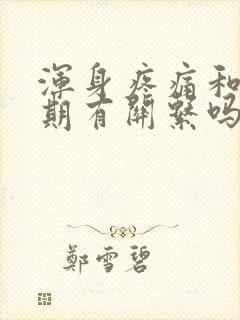 渾身疼痛和
期有關繫嗎
鄭雪碧